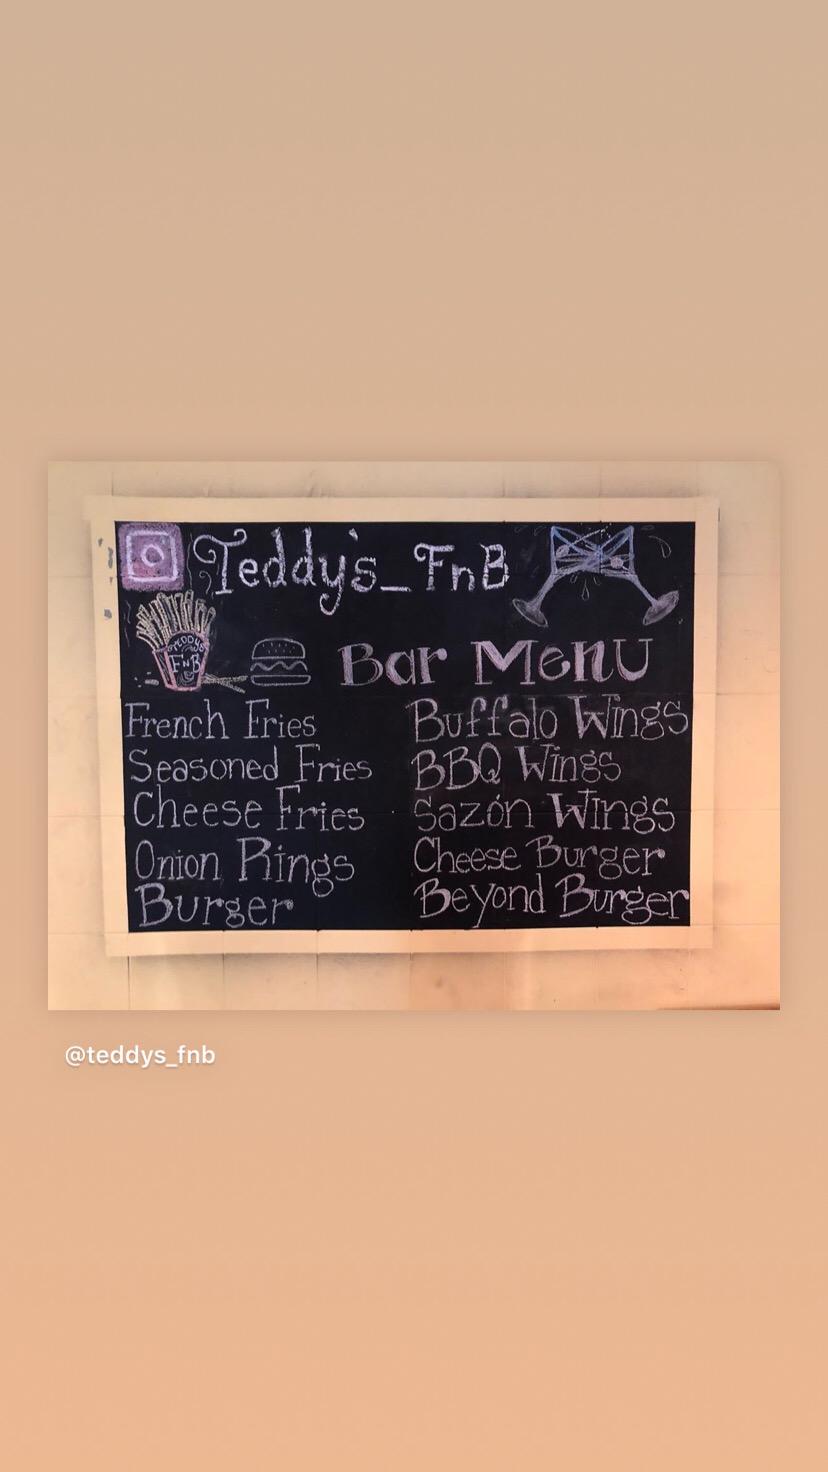 Teddy's_FnB
TEDDYS
FnB
Bar Menu
French Fries
Seasoned Fries
Cheese Fries
Onion Rings
Burger
Buffalo Wings
BBQ Wings
Sazón Wings
Cheese Burger
Beyond Burger
@teddys_fnb